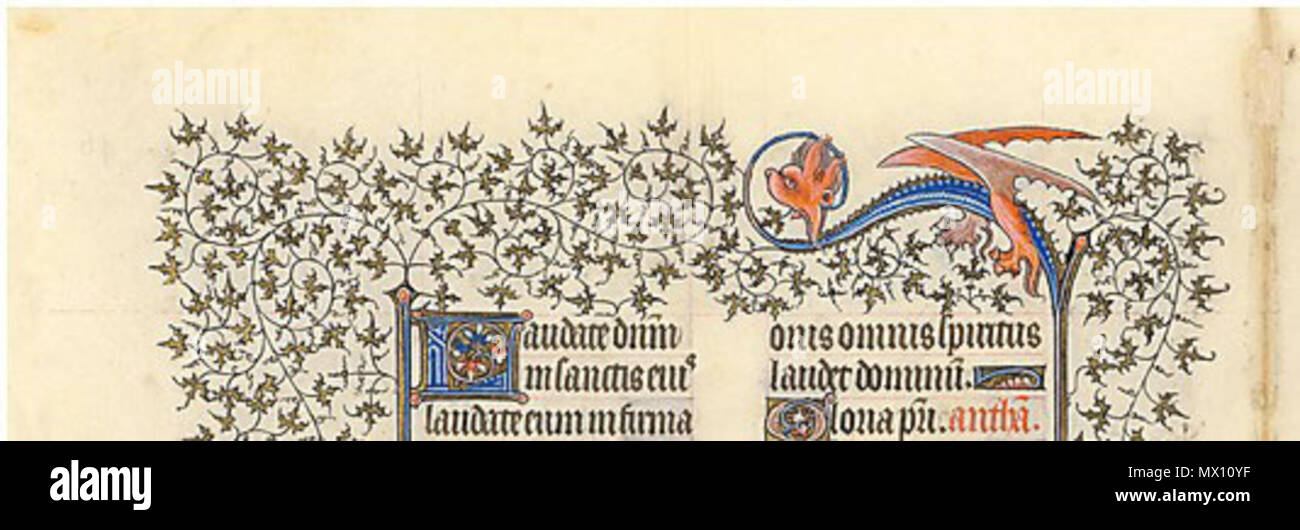 Laudate dnm
in sanctis eius
laudate eum in firma
onis omnis spiritus
laudet dominū.
Gloria pri. anthā.
alamy
Image ID: MX10YF
www.alamy.com